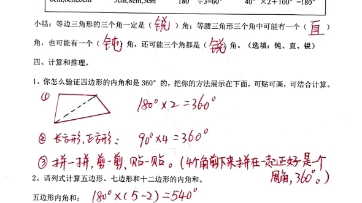 180° ÷3=60° 40° ×2+100° =180°
小结：等边三角形的三个角一定是（锐）角；等腰三角形三个角中可能有一个（直）
角，也可能有一个（钝）角，还可能三个角都是（锐）角。（选填：钝、直、锐）
四、计算和推理。
1、你怎么验证四边形的内角和是 360°的，把你的方法展示在下面，可贴可画、可结合计算。
① 180°×2=360°
② 长方形，正方形： 90°×4=360°
③ 拼一拼，剪一剪，贴一贴。（4个角剪下来拼在一起正好是一个
周角，360°。）
2、请列式计算五边形、七边形和十二边形的内角和。
五边形内角和： 180°×(5-2)=540°